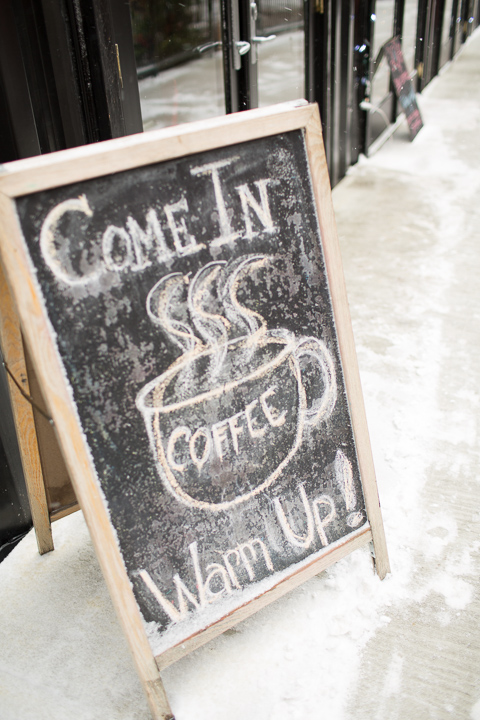 COME IN
COFFEE
Warm Up!